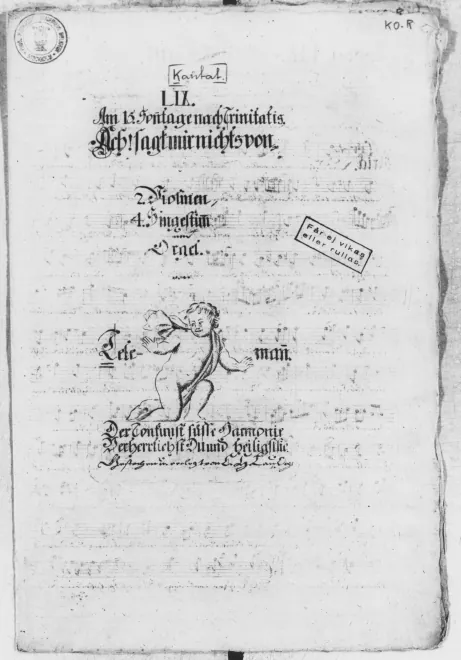 KO-R
Kantat.
LIX.
Am 13. Soñtage nach Trinitatis.
Ach! sagt mir nichts von.
2. Violinen,
4. Singestim̃
und
Orgel.
von
Tele- mañ.
Får ej vikas
eller rullas.
Der Tonkunst süsse Harmonie
Verherrlichst Du und heiligst sie.